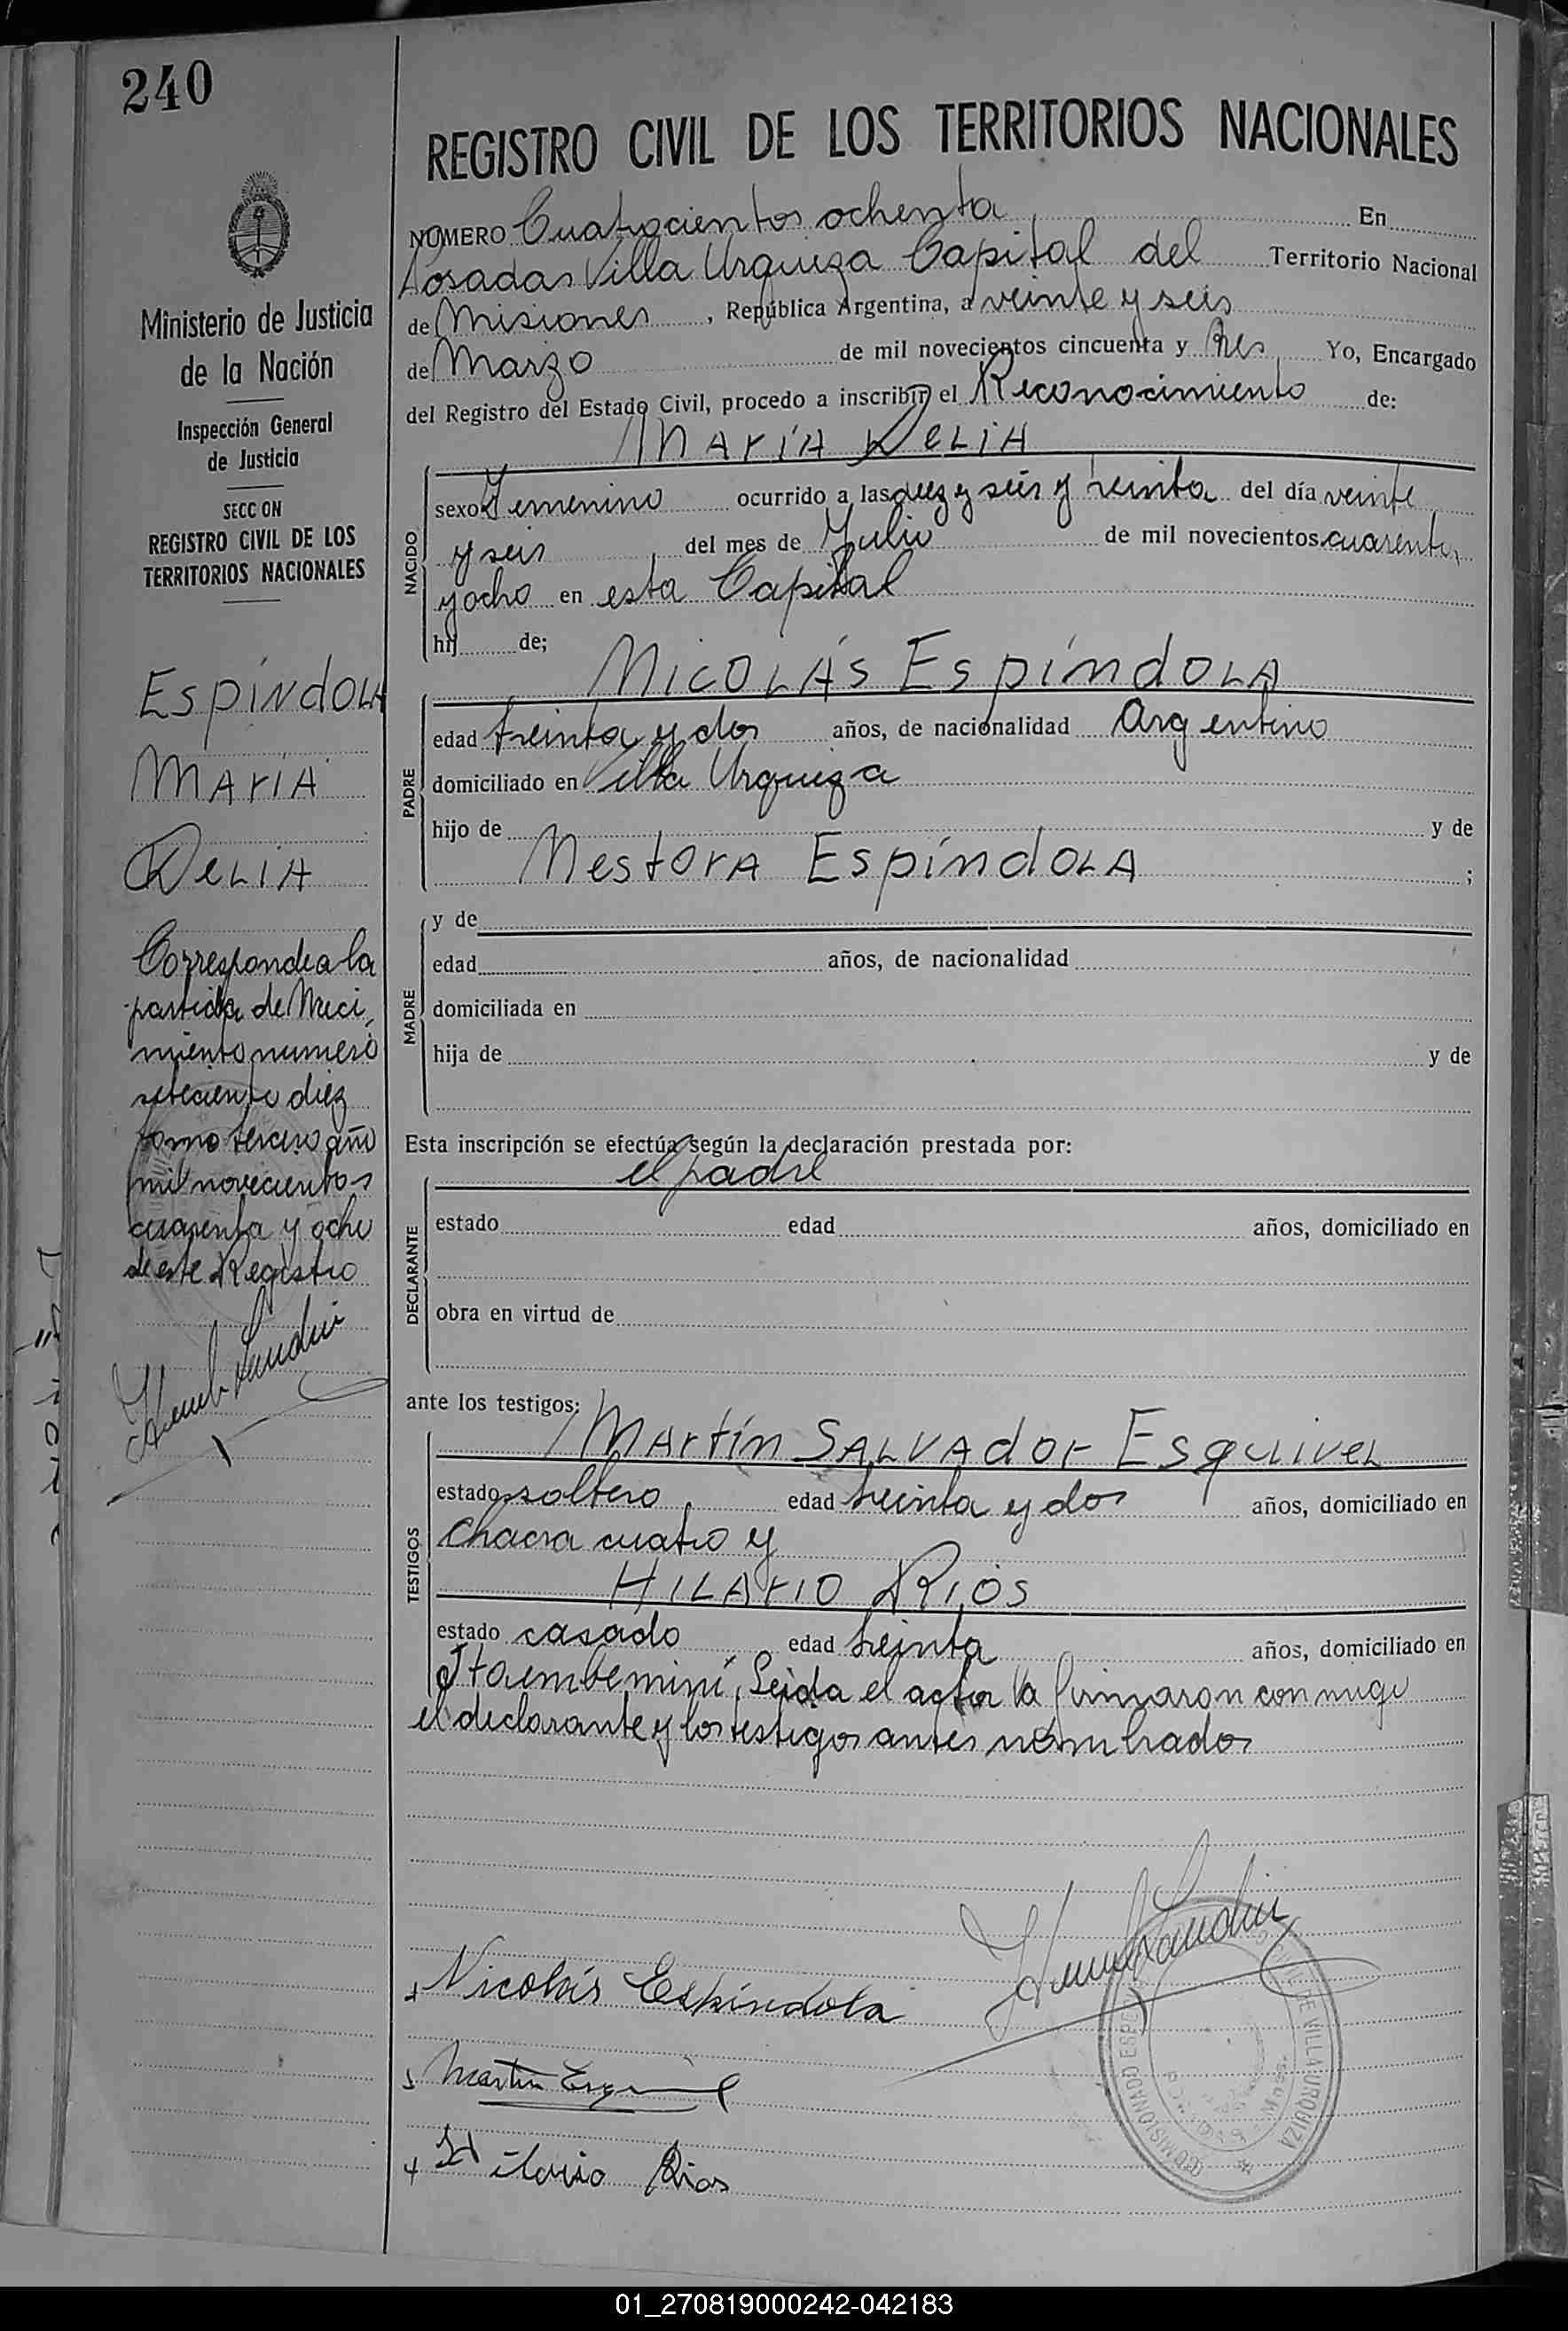 240
Ministerio de Justicia
de la Nación
Inspección General
de Justicia
SECC ON
REGISTRO CIVIL DE LOS
TERRITORIOS NACIONALES
Espíndola
María
Delia
Corresponde a la
partida de Naci
miento numero
setecientos diez
tomo tercero año
mil novecientos
cuarenta y ocho
de este Registro
REGISTRO CIVIL DE LOS TERRITORIOS NACIONALES
NUMERO Cuatrocientos ochenta En
Posadas Villa Urquiza Capital del Territorio Nacional
de Misiones, República Argentina, a veinte y seis
de Marzo de mil novecientos cincuenta y tres Yo, Encargado
del Registro del Estado Civil, procedo a inscribir el Reconocimiento de:
María Delia
NACIDO
sexo Femenino ocurrido a las diez y seis y treinta del día veinte
y seis del mes de Julio de mil novecientos cuarenta
y ocho en esta Capital
hij de;
Nicolás Espíndola
PADRE
edad treinta y dos años, de nacionalidad Argentino
domiciliado en Villa Urquiza
hijo de y de
Nestora Espíndola ;
MADRE
y de
edad años, de nacionalidad
domiciliada en
hija de y de
Esta inscripción se efectúa según la declaración prestada por:
el padre
DECLARANTE
estado edad años, domiciliado en
obra en virtud de
ante los testigos:
Martín Salvador Esquivel
TESTIGOS
estado soltero, edad treinta y dos años, domiciliado en
Chacra cuatro y
Hilario Ríos
estado casado edad treinta años, domiciliado en
Itaembeminí, Leida el acta la firmaron conmigo
el declarante y los testigos antes nombrados
Nicolás Espíndola
Martin Esquivel
Hilario Rios
COMISIONADO ESPE CIVIL DE VILLA URQUIZA
01_270819000242-042183